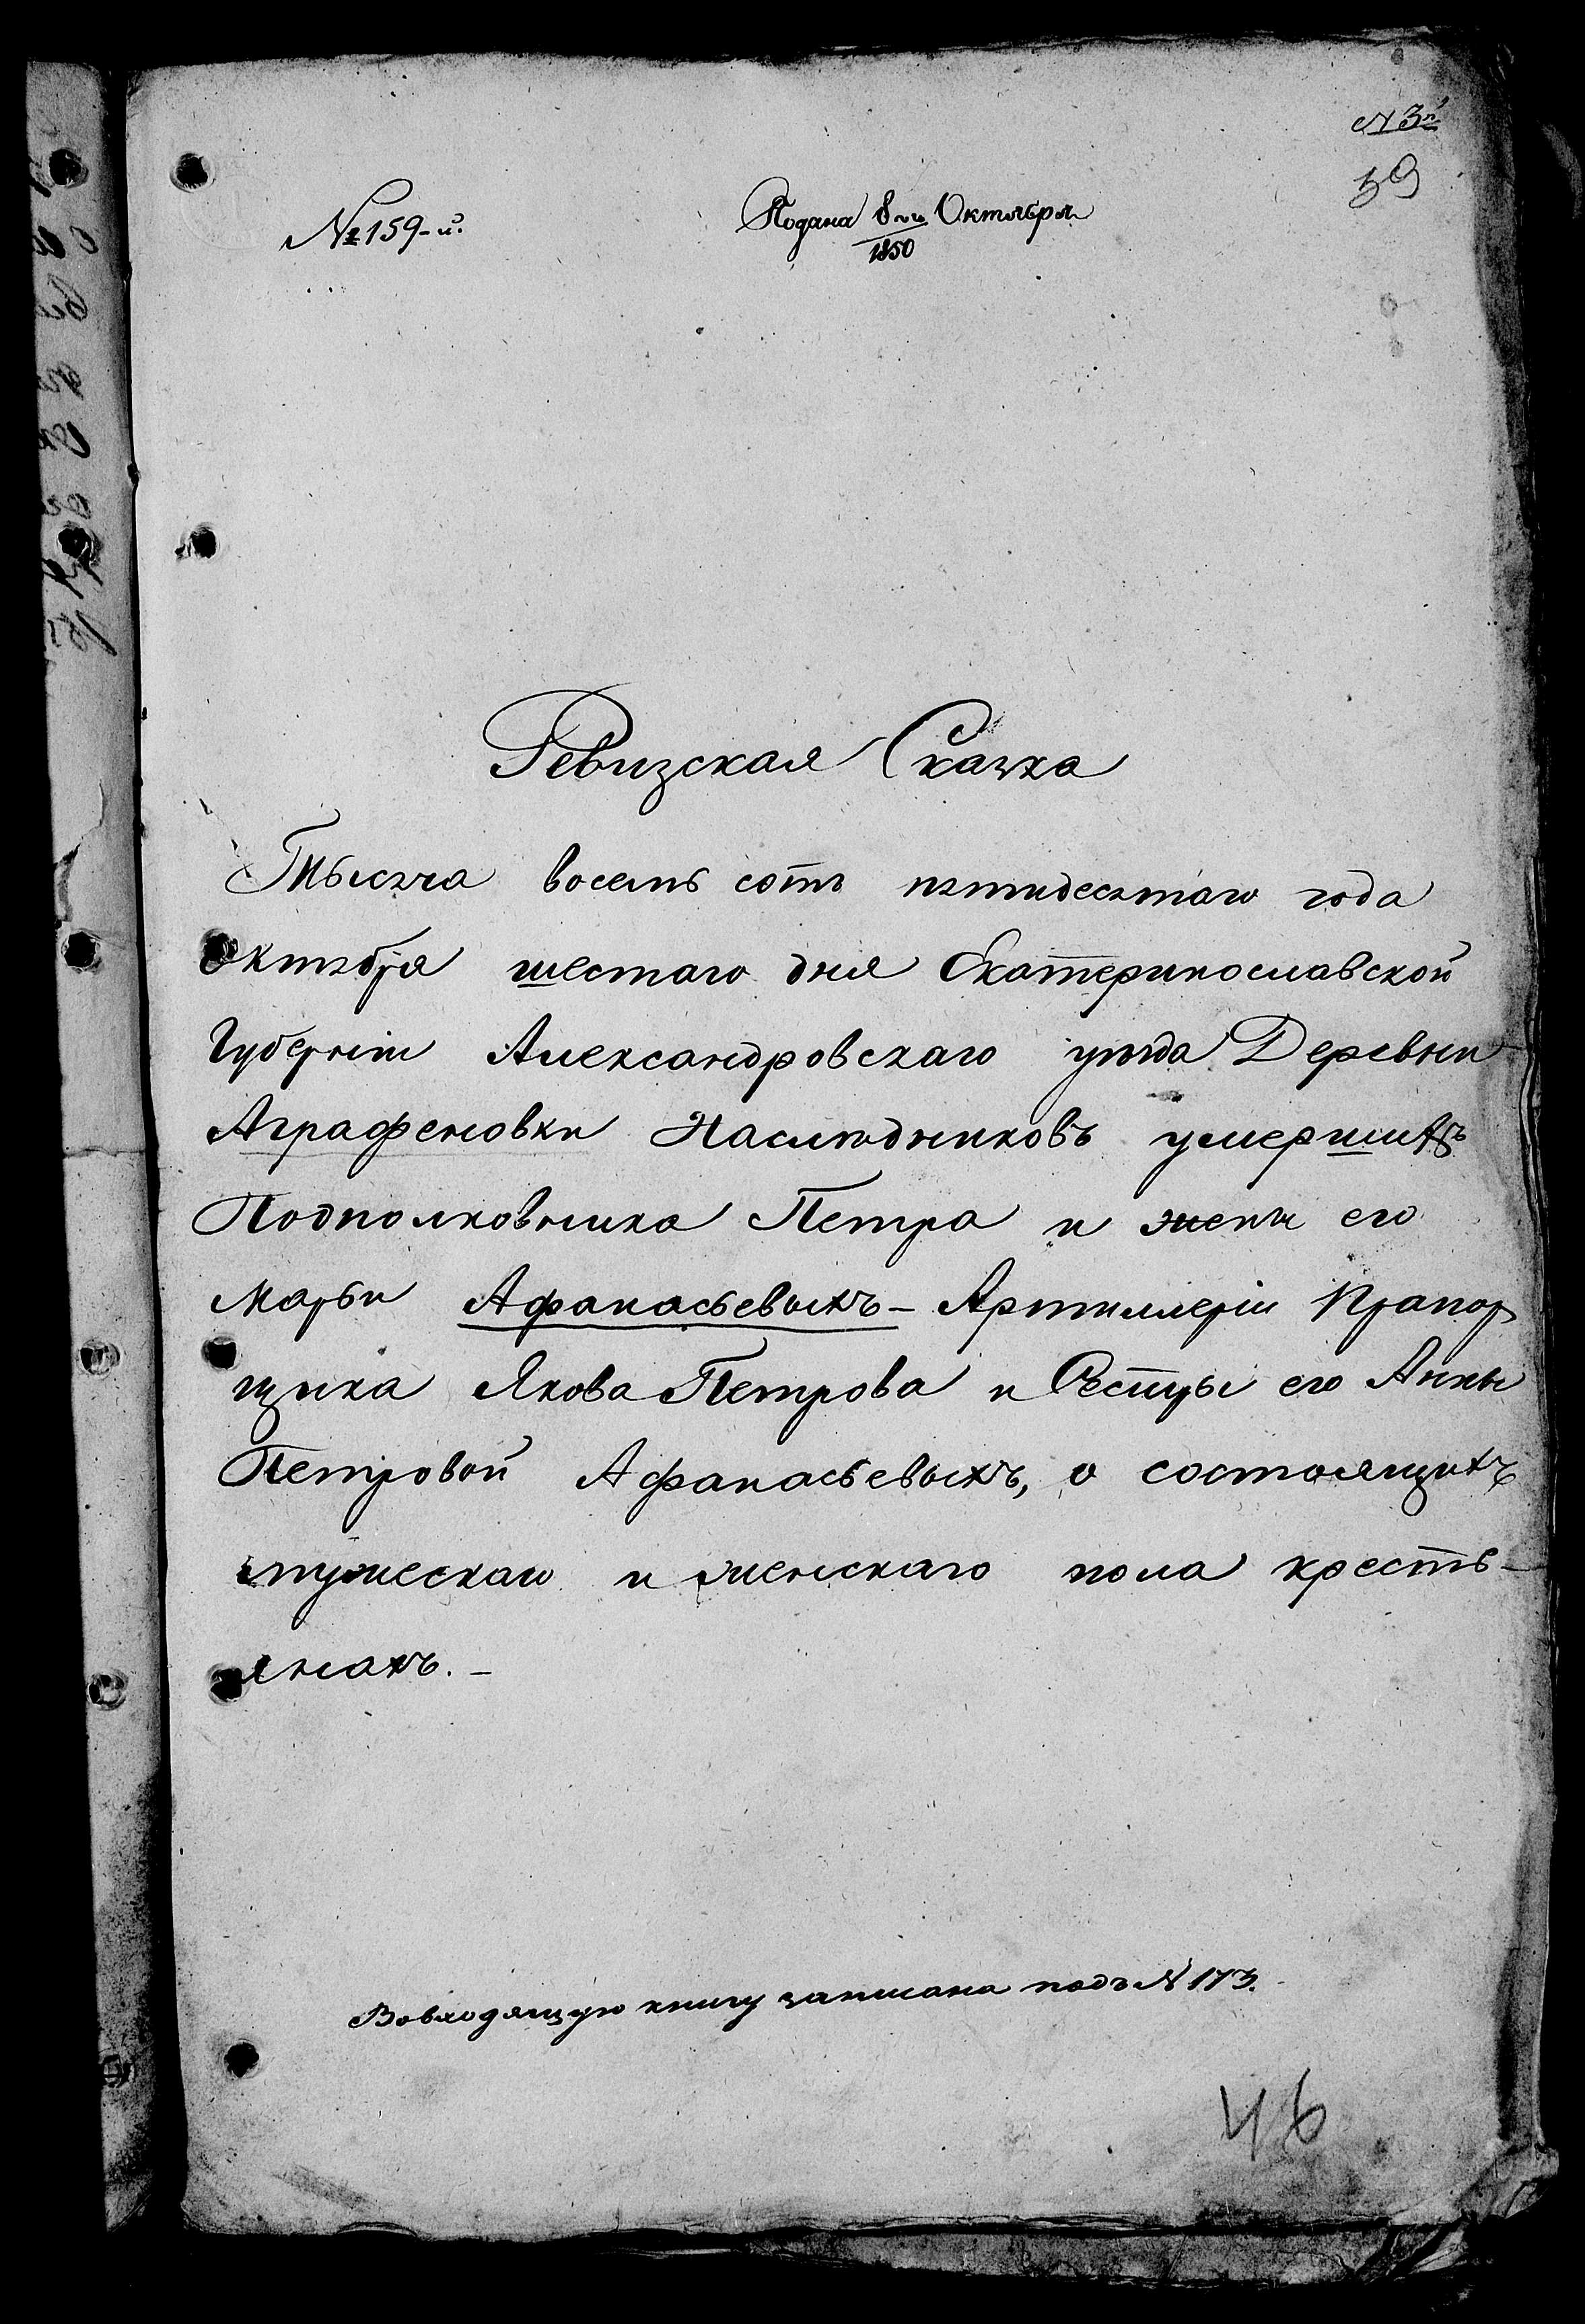 N 3й
39
№ 159-й.
Подана 8го Октября
1850
Ревизская Сказка
Тысяча восемь сотъ пятидесятаго года
Октября шестаго дня Екатеринославской
Губерніи Александровскаго уѣзда Деревни
Аграфеновки Наслѣдниковъ умершихъ
Подполковника Петра и жены его
Марьи Афанасьевыхъ - Артиллеріи Прапор
щика Якова Петрова и Сестры его Анны
Петровой Афанасьевыхъ, о состоящихъ
мужескаго и женскаго пола кресть-
янахъ. -
Вовходящую книгу записана подъ N 173.
46